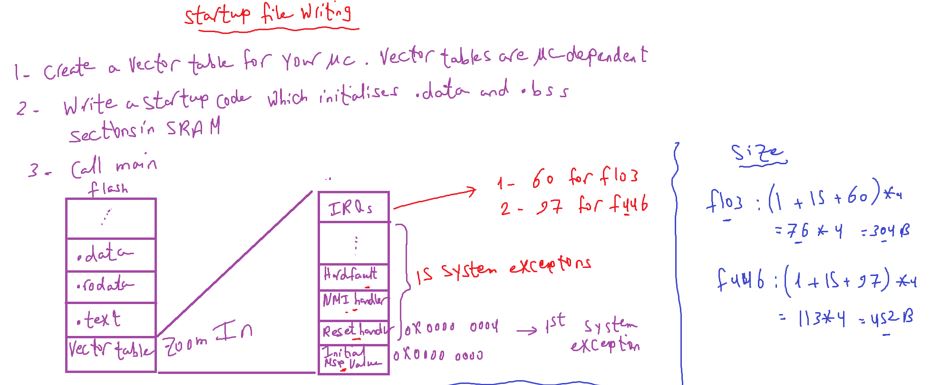 startup file writing
1- Create a vector table for your µc. Vector tables are µc-dependent
2- Write a startup code which initialises .data and .bss
sections in SRAM
3- Call main
flash
.data
.rodata
.text
Vector table
Zoom In
IRQs
Hardfault
NMI handler
Reset handler
Initial
MSP Value
0x0000 0004 → 1st System
exception
0x0000 0000
15 System exceptions
1- 60 for f103
2- 97 for f446
Size
f103 : (1 + 15 + 60) * 4
= 76 * 4 = 304 B
f446 : (1 + 15 + 97) * 4
= 113 * 4 = 452 B